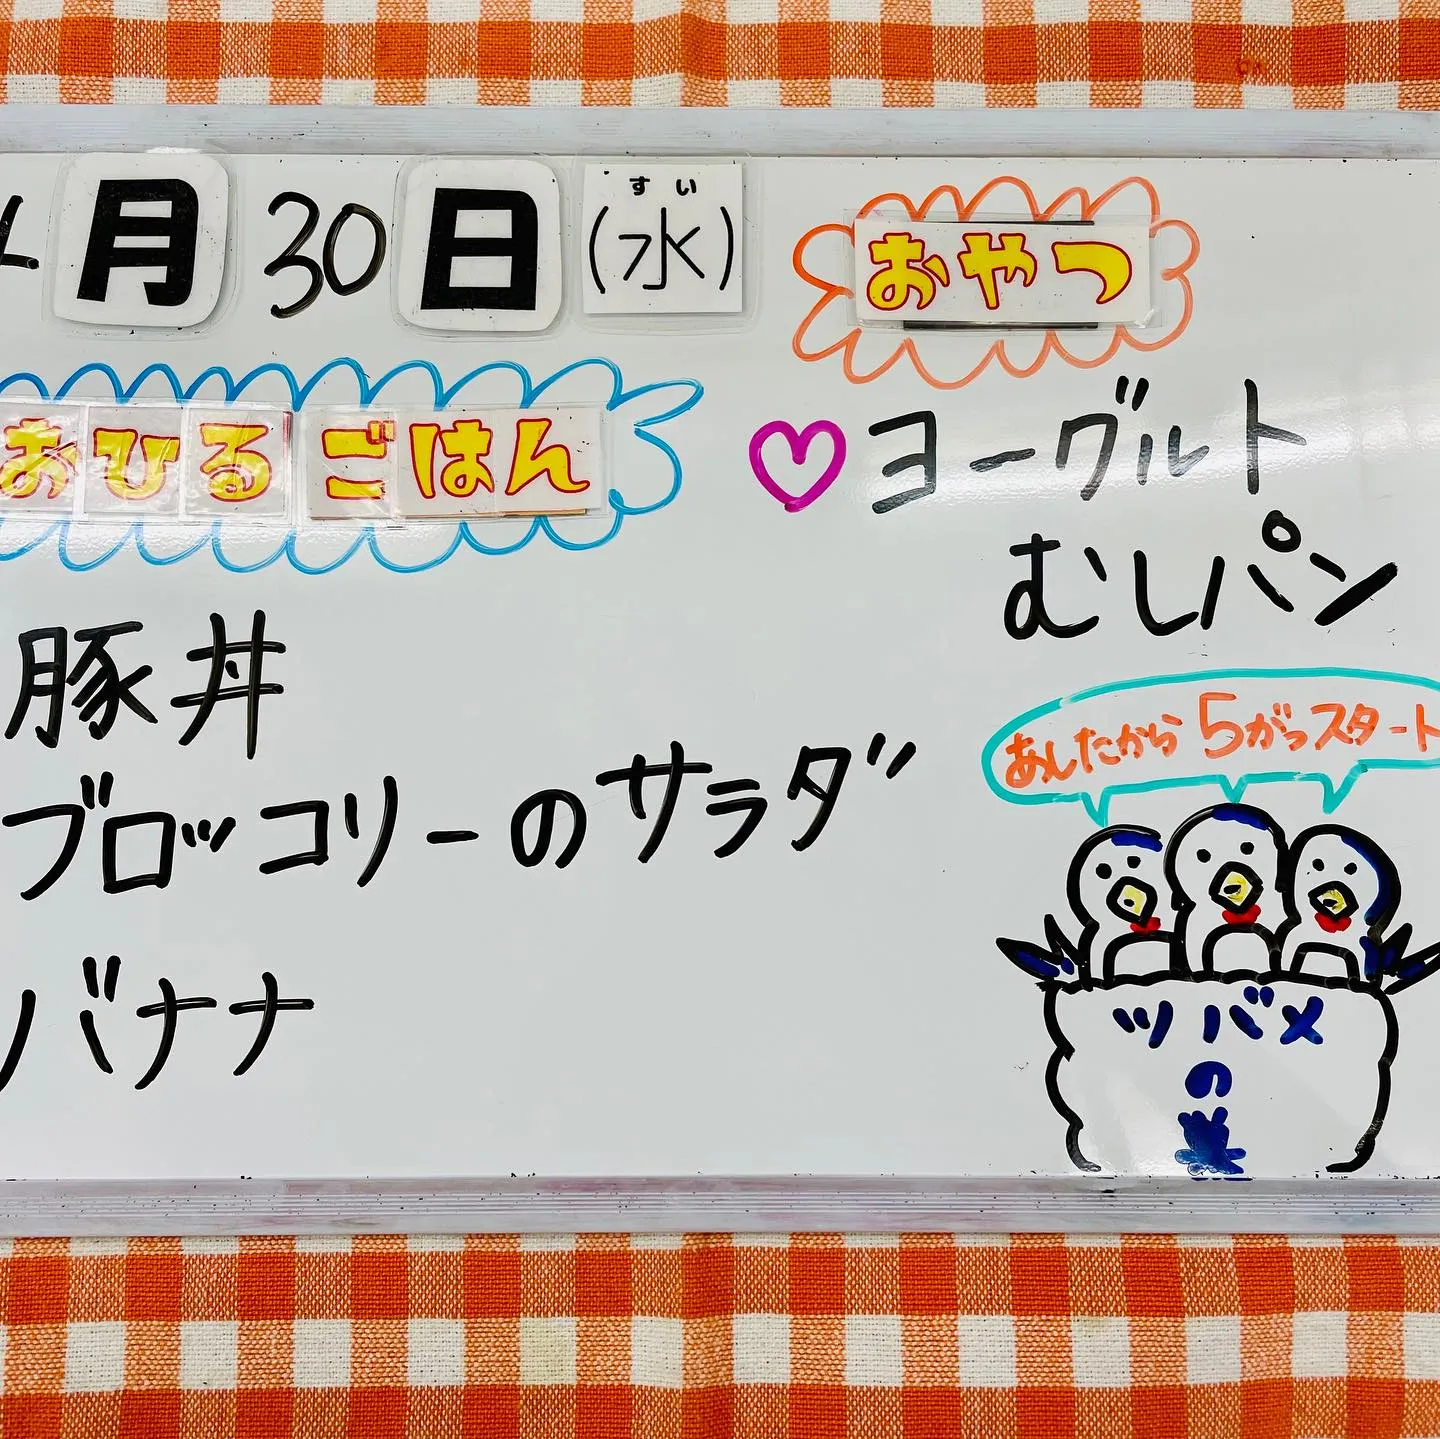 4月30日(水)
すい
おひるごはん
豚丼
ブロッコリーのサラダ
バナナ
おやつ
ヨーグルト
むしパン
あしたから5がつスタート
ツバメ
の